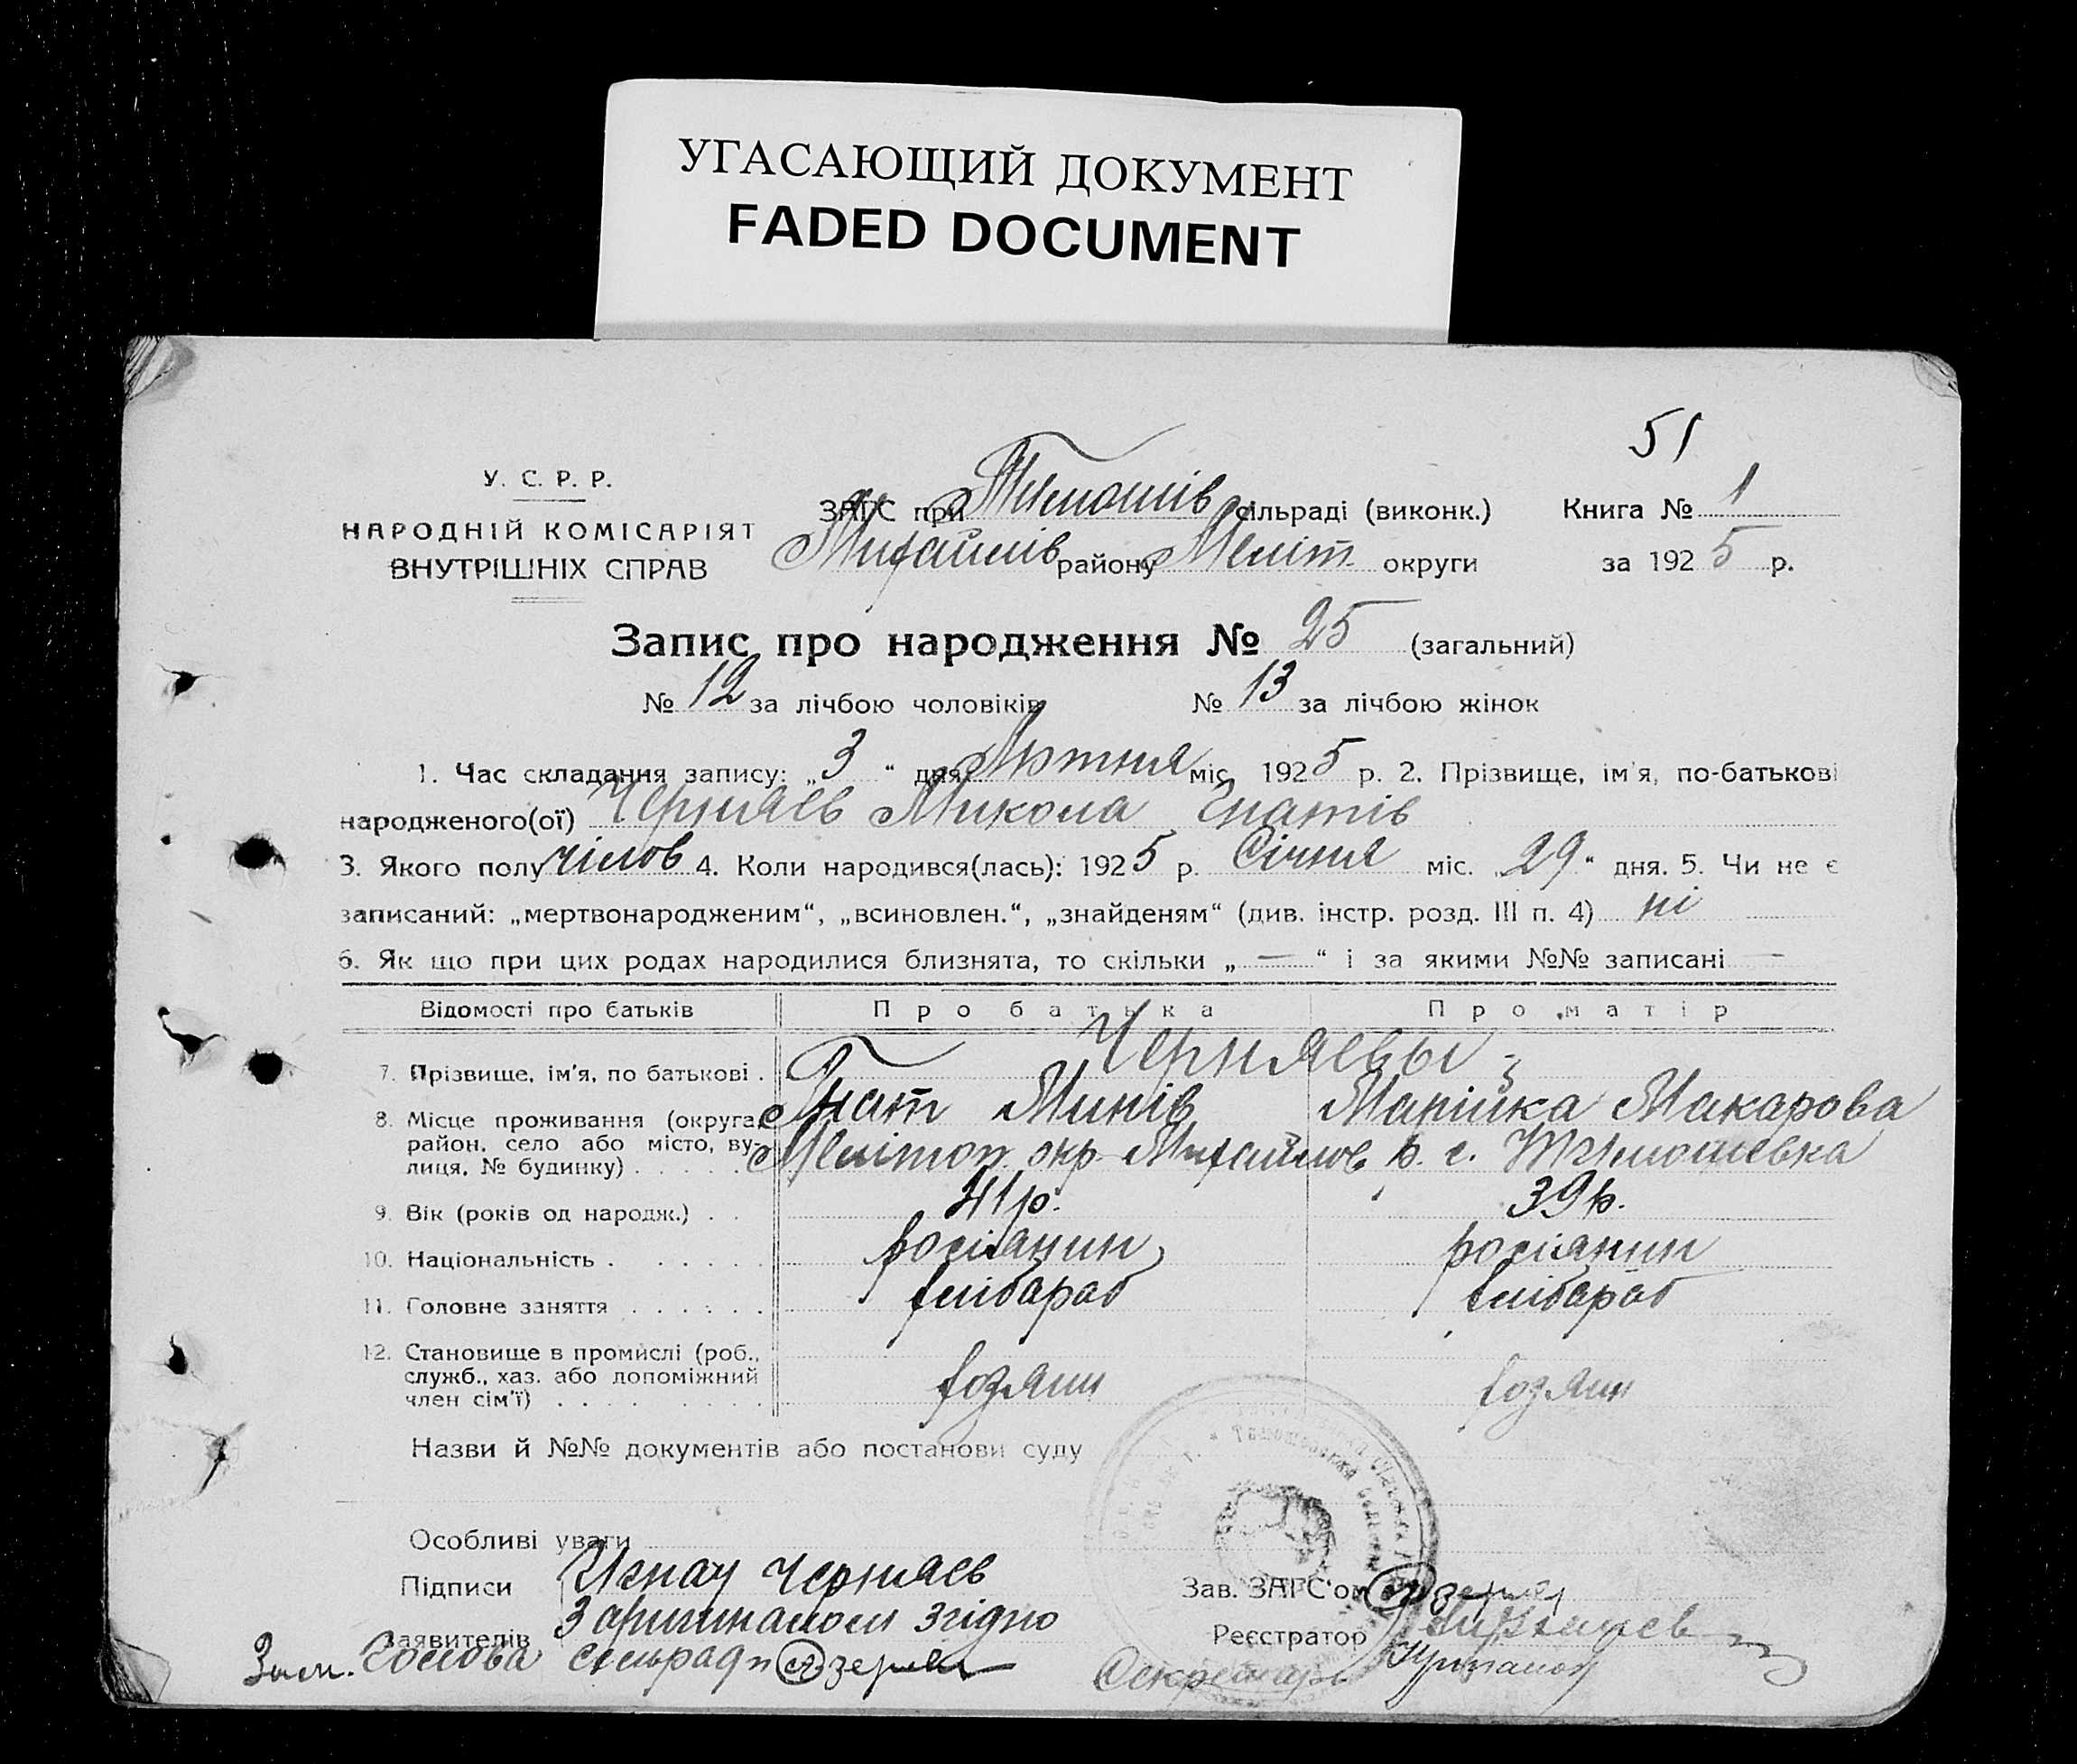 УГАСАЮЩИЙ ДОКУМЕНТ
FADED DOCUMENT
51
У. С. Р. Р.
НАРОДНІЙ КОМІСАРІЯТ
ВНУТРІШНІХ СПРАВ
ЗАГС при Тимошів сільраді (виконк.) Книга № 1
Михайлів району Меліт. округи за 1925 р.
Запис про народження № 25 (загальний)
№ 12 за лічбою чоловіків № 13 за лічбою жінок
1. Час складання запису: „3“ дня Лютня міс. 1925 р. 2. Прізвище, ім'я, по-батькові
народженого(ої) Черняев Микола Гнатів
3. Якого полу чілов 4. Коли народився(лась): 1925 р. Січня міс. „29“ дня. 5. Чи не є
записаний: „мертвонародженим“, „всиновлен.“, „знайденям“ (див. інстр. розд. III п. 4) ні
6. Як що при цих родах народилися близнята, то скільки „—“ і за якими №№ записані —
Відомості про батьків Про батька Про матір
Черняевы
7. Прізвище, ім'я, по батькові . Гнат Минів Марійка Макарова
8. Місце проживання (округа,
район, село або місто, ву-
лиця, № будинку) . . . . . Мелітоп. окр. Михайлов. р. с. Тимошевка
9. Вік (років од народж.) . . 41 р. 39 р.
10. Національність . . . . . . росіянин росіянин
11. Головне заняття . . . . . . хлібароб хлібароб
12. Становище в промислі (роб.,
служб., хаз. або допоміжний
член сім'ї) . . . . . . . . хозяин хозяин
Назви й №№ документів або постанови суду
Особливі уваги
Підписи Игнат Черняев Зав. ЗАГС'ом
заявителів З аригиналом згідно Реєстратор
Зам. Голова сельради Секретарь